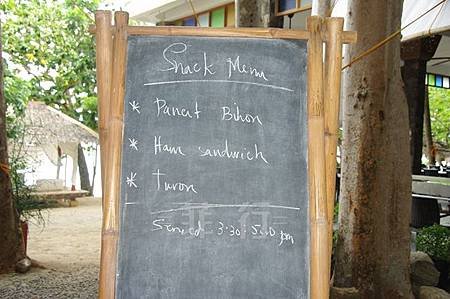 Snack Menu
* Pancit Bihon
* Ham sandwich
* Turon
菲行
Served 3:30-5:00 pm